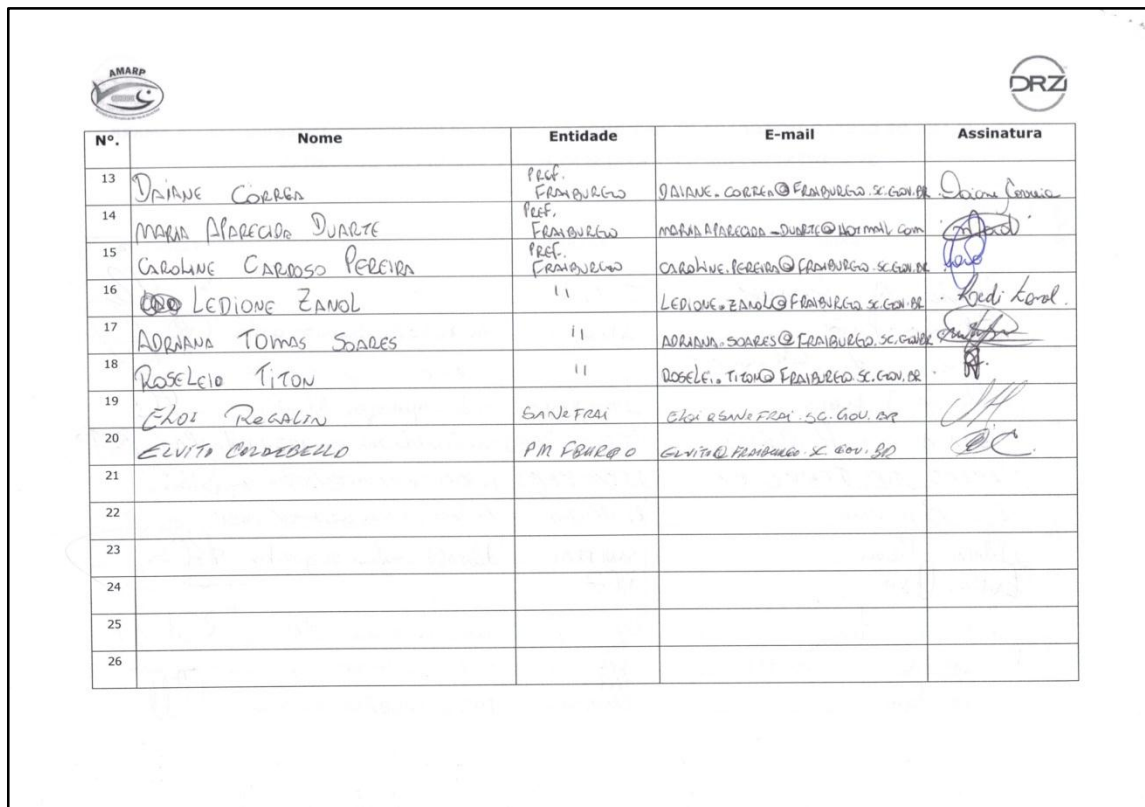 AMARP
DRZ
Nº. Nome Entidade E-mail Assinatura
13 DAIANE CORREA PREF. FRAIBURGO DAIANE.CORREA@FRAIBURGO.SC.GOV.BR Daiane Correia
14 MARIA APARECIDA DUARTE PREF. FRAIBURGO MARIAAPARECIDA-DUARTE@HOTMAIL.COM
15 CAROLINE CARDOSO PEREIRA PREF. FRAIBURGO CAROLINE.PEREIRA@FRAIBURGO.SC.GOV.BR
16 LEDIONE ZANOL " LEDIONE.ZANOL@FRAIBURGO.SC.GOV.BR
17 ADRIANA TOMAS SOARES " ADRIANA.SOARES@FRAIBURGO.SC.GOV.BR
18 ROSELEIO TITON " ROSELEI.TITON@FRAIBURGO.SC.GOV.BR
19 ELOI REGALIN SANEFRAI ELOI@SANEFRAI.SC.GOV.BR
20 ELVITO COLDEBELLO PM FBURGO ELVITO@FRAIBURGO.SC.GOV.BR
21
22
23
24
25
26